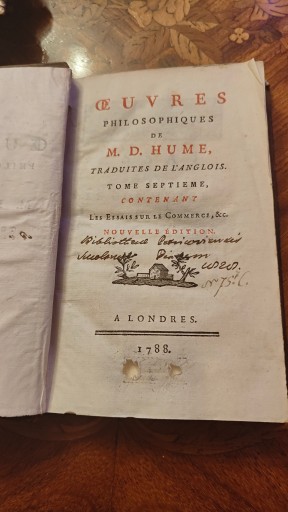 ŒUVRES
PHILOSOPHIQUES
DE
M. D. HUME,
TRADUITES DE L'ANGLOIS.
TOME SEPTIEME,
CONTENANT
LES ESSAIS SUR LE COMMERCE, &c.
NOUVELLE ÉDITION.
Bibliotheca
A LONDRES.
1788.